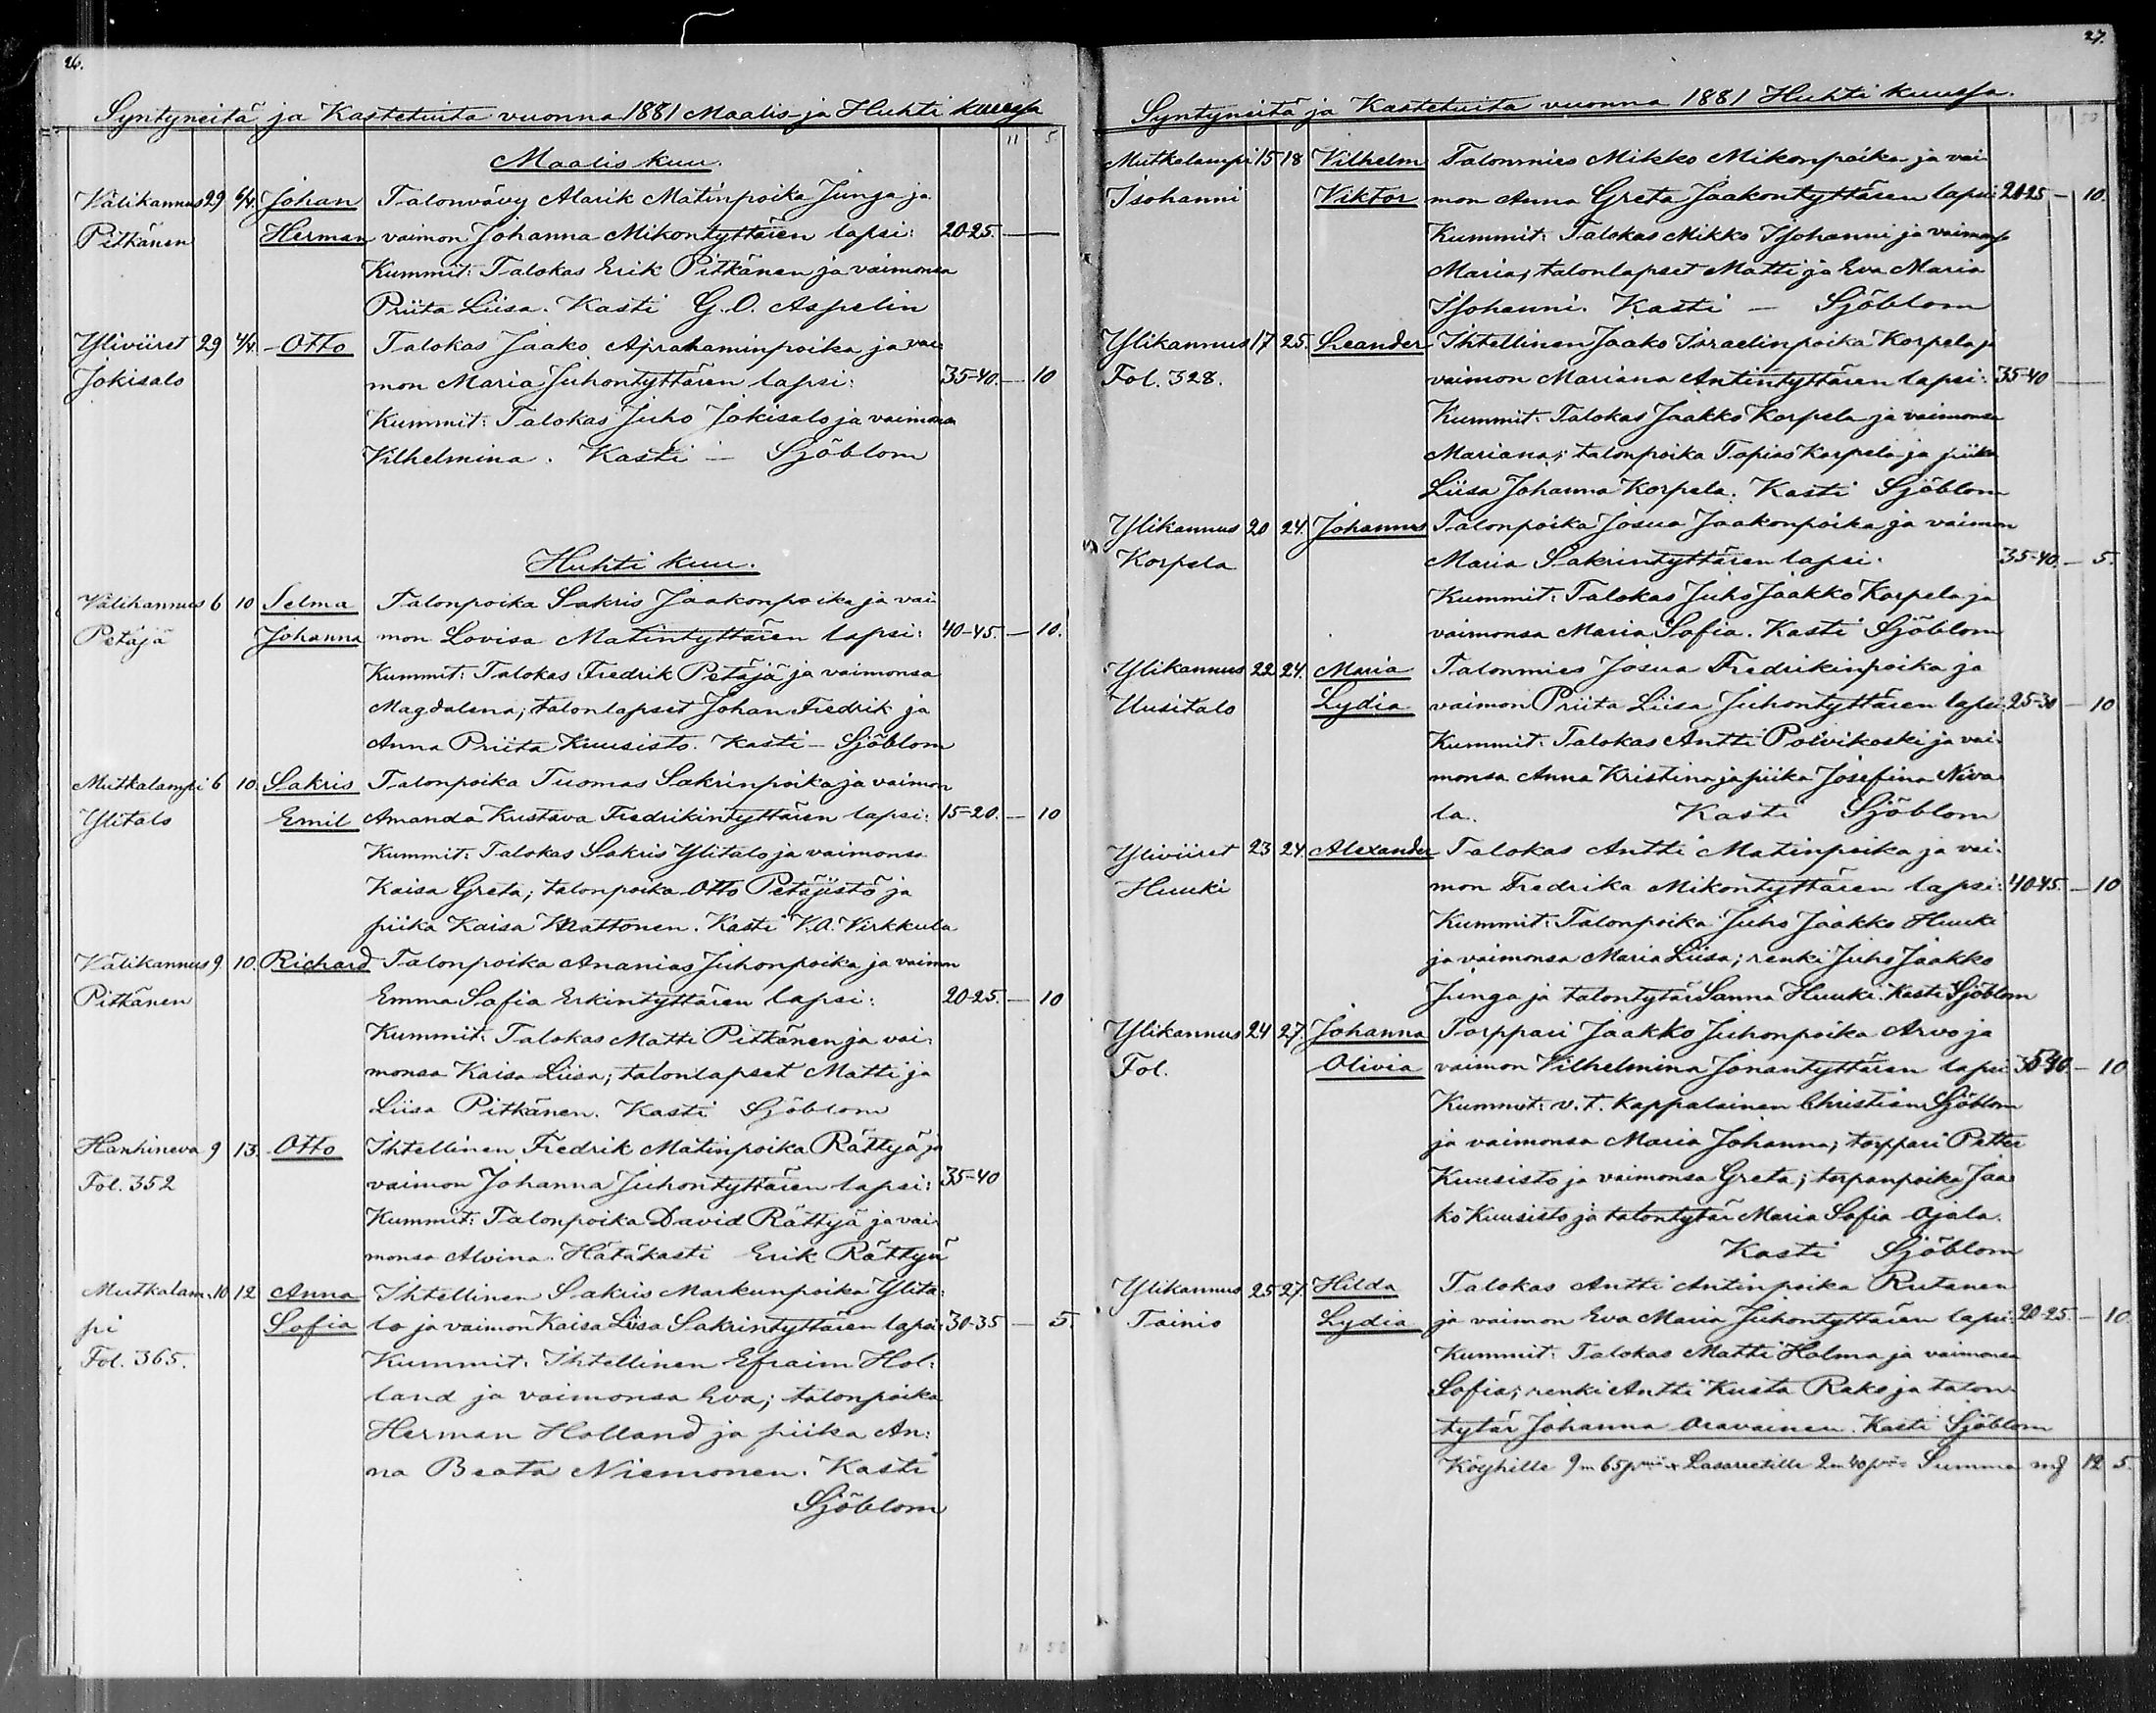 26.
Syntyneitä ja Kastetuita vuonna 1881 Maalis- ja Huhti kuussa
11 5.
Maalis kuu.
Välikannus 29 6/4. Johan Talonvävy Alarik Matinpoika Junga ja
Pitkänen Herman vaimon Johanna Mikontyttären lapsi: 20-25. —
Kummit: Talokas Erik Pitkänen ja vaimonsa
Priita Liisa. Kasti G. O. Aspelin
Yliviiret 29 4/4. Otto Talokas Jaako Aprahaminpoika ja vai-
Jokisalo mon Maria Juhontyttären lapsi: 35-40. — 10
Kummit: Talokas Juho Jokisalo ja vaimonsa
Vilhelmina. Kasti — Sjöblom
Huhti kuu.
Välikannus 6 10 Selma Talonpoika Sakris Jaakonpoika ja vai-
Petäjä Johanna mon Lovisa Matintyttären lapsi: 40-45. — 10.
Kummit: Talokas Fredrik Petäjä ja vaimonsa
Magdalena; talonlapset Johan Fredrik ja
Anna Priita Kuusisto. Kasti — Sjöblom
Mutkalampi 6 10. Sakris Talonpoika Tuomas Sakrinpoika ja vaimon
Ylitalo Emil Amanda Kustava Fredrikintyttären lapsi: 15-20. — 10
Kummit: Talokas Sakris Ylitalo ja vaimonsa
Kaisa Greta; talonpoika Otto Petäjistö ja
piika Kaisa Mattonen. Kasti K. A. Virkkula
Välikannus 9 10. Richard Talonpoika Ananias Juhonpoika ja vaimon
Pitkänen Emma Sofia Erkintyttären lapsi: 20-25. — 10
Kummit: Talokas Matti Pitkänen ja vai-
monsa Kaisa Liisa; talonlapset Matti ja
Liisa Pitkänen. Kasti Sjöblom
Hanhineva 9 13. Otto Ihtellinen Fredrik Matinpoika Rättyä ja
Fol. 352 vaimon Johanna Juhontyttären lapsi: 35-40
Kummit: Talonpoika David Rättyä ja vai-
monsa Alvina. Hätäkasti Erik Rättyä
Mutkalam- 10 12 Anna Ihtellinen Sakris Markunpoika Ylita-
pi Sofia lo ja vaimon Kaisa Liisa Sakrintyttären lapsi: 30-35 — 5.
Fol. 365. Kummit: Ihtellinen Efraim Hol-
land ja vaimonsa Eva; talonpoika
Herman Holland ja piika An-
na Beata Niemonen. Kasti
Sjöblom
27.
Syntyneitä ja Kastetuita vuonna 1881 Huhti kuussa.
Mutkalampi 15 18 Vilhelm Talonmies Mikko Mikonpoika ja vai-
Isohanni Viktor mon Anna Greta Jaakontyttären lapsi: 20-25 — 10.
Kummit: Talokas Mikko Isohanni ja vaimonsa
Maria; talonlapset Matti ja Eva Maria
Isohanni. Kasti — Sjöblom
Ylikannus 17 25. Leander Ihtellinen Jaako Israelinpoika Korpela ja
Fol. 328. vaimon Mariana Antintyttären lapsi: 35-40 —
Kummit: Talokas Jaakko Korpela ja vaimonsa
Mariana; talonpoika Topias Korpela ja piika
Liisa Johanna Korpela. Kasti Sjöblom
Ylikannus 20 24. Johannes Talonpoika Josua Jaakonpoika ja vaimon
Korpela Maria Sakrintyttären lapsi. 35-40. — 5.
Kummit: Talokas Juho Jaakko Korpela ja
vaimonsa Maria Sofia. Kasti Sjöblom
Ylikannus 22 24. Maria Talonmies Josua Fredrikinpoika ja
Uusitalo Lydia vaimon Priita Liisa Juhontyttären lapsi: 25-30 — 10
Kummit: Talokas Antti Polvikoski ja vai-
monsa Anna Kristina ja piika Josefina Niva-
la. Kasti Sjöblom
Yliviiret 23 24. Alexander Talokas Antti Matinpoika ja vai-
Huuki mon Fredrika Mikontyttären lapsi: 40-45. — 10
Kummit: Talonpoika Juho Jaakko Huuki
ja vaimonsa Maria Liisa; renki Juho Jaakko
Junga ja talontytär Sanna Huuki. Kasti Sjöblom
Ylikannus 24 27. Johanna Torppari Jaakko Juhonpoika Arvo ja
Fol. Olivia vaimon Vilhelmina Jonantyttären lapsi 35-40 — 10
Kummit: v. t. Kappalainen Christian Sjöblom
ja vaimonsa Maria Johanna; torppari Petter
Kuusisto ja vaimonsa Greta; torpanpoika Jaa-
ko Kuusisto ja talontytär Maria Sofia Ojala.
Kasti Sjöblom
Ylikannus 25 27. Hilda Talokas Antti Antinpoika Rutanen
Tainio Lydia ja vaimon Eva Maria Juhontyttären lapsi: 20-25. — 10.
Kummit: Talokas Matti Halma ja vaimonsa
Sofia; renki Antti Kusta Rako ja talon-
tytär Johanna Oravainen. Kasti Sjöblom
Köyhille 9 m 65 p Lasareetille 2 m 40 p Summa 12 5.